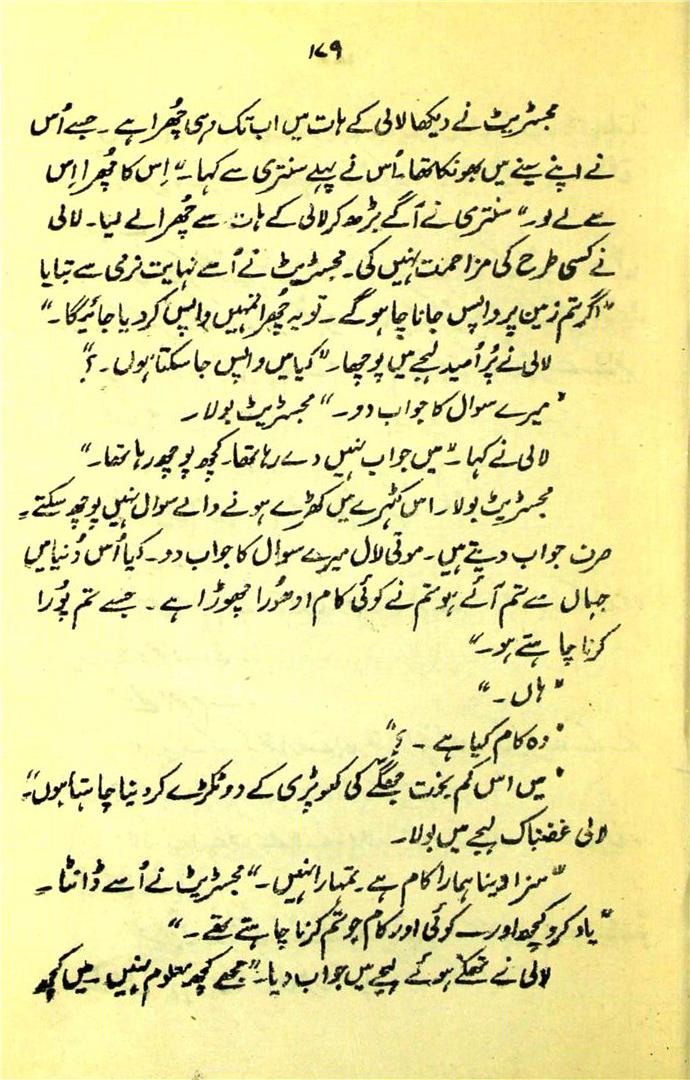 ۱۷۹
مجسٹریٹ نے دیکھا لالی کے ہات میں اب تک وہی چُھرا ہے ۔ جسے اُس
نے اپنے سینے میں بھونکا تھا۔ اُس نے پہلے سنتری سے کہا۔ "اِس کا چُھرا اِس
سے لے لو۔" سنتری نے آگے بڑھ کر لالی کے ہات سے چُھرا لے لیا۔ لالی
نے کسی طرح کی مزاحمت نہیں کی۔ مجسٹریٹ نے اُسے نہایت نرمی سے بتایا
"اگر تم زمین پر واپس جانا چاہو گے ۔ تو یہ چُھرا تمہیں واپس کر دیا جائیگا۔"
لالی نے پُر اُمید لہجے میں پوچھا۔ "کیا میں واپس جا سکتا ہوں ۔ ؟"
"میرے سوال کا جواب دو۔" مجسٹریٹ بولا۔
لالی نے کہا۔ "میں جواب نہیں دے رہا تھا۔ کچھ پوچھ رہا تھا۔"
مجسٹریٹ بولا۔ اس کٹہرے میں کھڑے ہونے والے سوال نہیں پوچھ سکتے۔
صرف جواب دیتے ہیں ۔ موتی لال میرے سوال کا جواب دو۔ کیا اُس دُنیا میں
جہاں سے تم آئے ہو تم نے کوئی کام ادھُورا چھوڑا ہے ۔ جسے تم پُورا
کرنا چاہتے ہو۔"
"ہاں ۔"
"وہ کام کیا ہے ۔ ؟"
"میں اس کم بخت جھگّے کی کھوپڑی کے دو ٹکڑے کر دینا چاہتا ہوں"۔
لالی غضبناک لہجے میں بولا۔
"سزا دینا ہمارا کام ہے۔ تمہارا نہیں۔" مجسٹریٹ نے اُسے ڈانٹا۔
"یاد کرو کچھ اور ـــ کوئی اور کام جو تم کرنا چاہتے تھے ۔"
لالی نے تھکے ہوئے لہجے میں جواب دیا۔ "مجھے کچھ معلوم نہیں ۔ میں کچھ